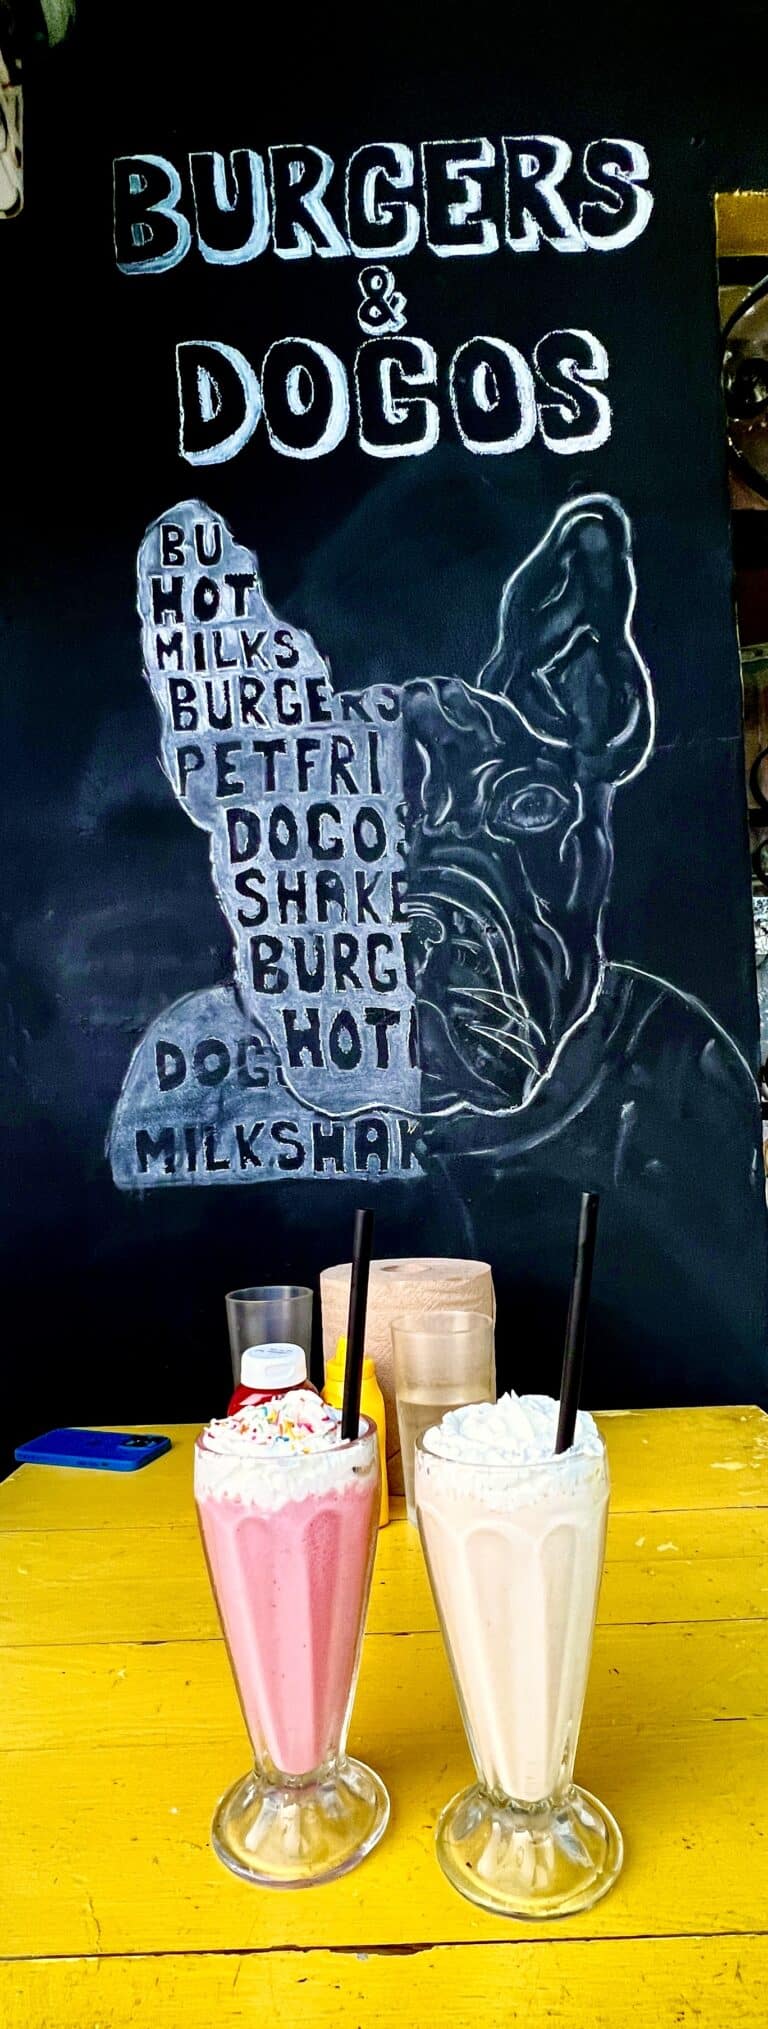 BURGERS
&
DOGOS
BU
HOT
MILKS
BURGERS
PETFRI
DOGOS
SHAKE
BURGE
HOT
DOG
MILKSHAK